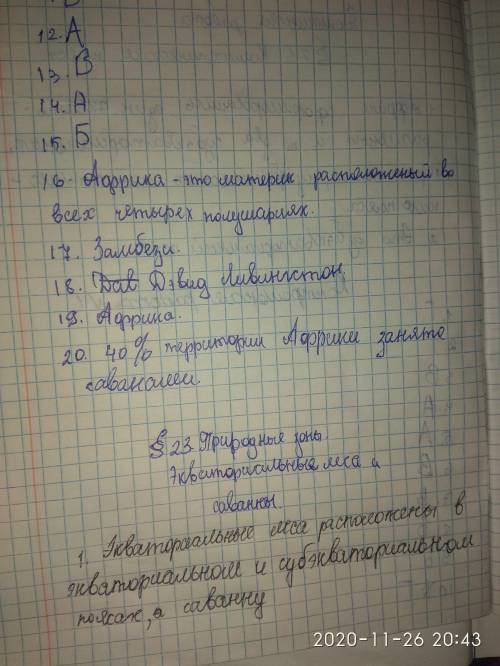 12. А
13. В
14. А
15. Б
16. Африка - это материк расположеный во
всех четырех полушариях.
17. Замбези.
18. Дав Дэвид Ливингстон.
19. Африка.
20. 40% территории Африки занято
саванами.
§ 23. Природные зоны.
Экваториальные леса и
саванны.
1. Экваториальные леса расположены в
экваториальном и субэкваториальном
поясах, а саванну
2020-11-26 20:43